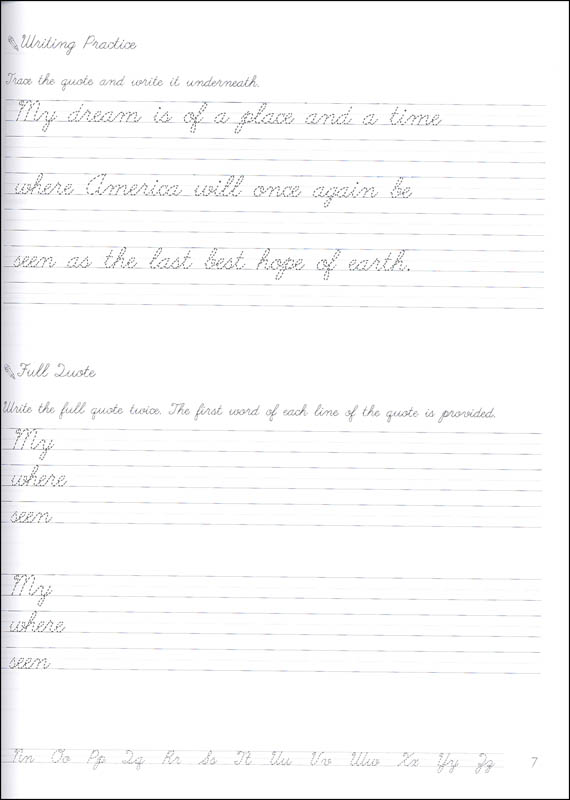 Writing Practice
Trace the quote and write it underneath.
My dream is of a place and a time
where America will once again be
seen as the last best hope of earth.
Full Quote
Write the full quote twice. The first word of each line of the quote is provided.
My
where
seen
My
where
seen
Nn Oo Pp Qq Rr Ss Tt Uu Vv Ww Xx Yy Zz 7